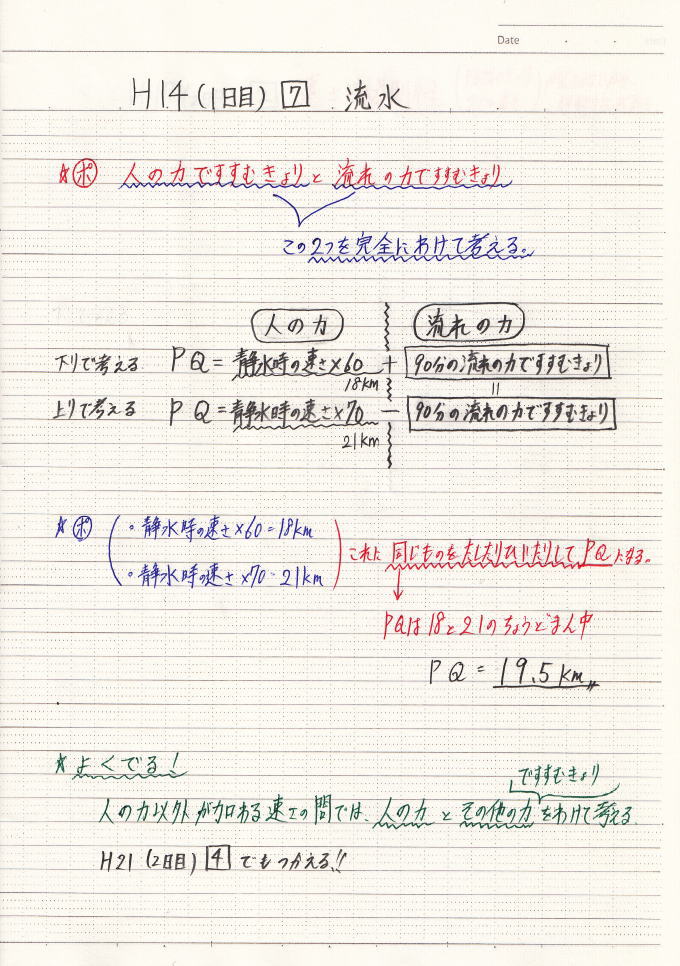 Date
H14(1日目) 7 流水
☆ポ 人の力ですすむきょりと流れの力ですすむきょり
この2つを完全にわけて考える。
人の力 流れの力
下りで考える PQ=静水時の速さ×60 + 90分の流れの力ですすむきょり
18km =
上りで考える PQ=静水時の速さ×70 − 90分の流れの力ですすむきょり
21km
☆ポ 。静水時の速さ×60=18km
これに同じものをたしたりひいたりしてPQになる。
。静水時の速さ×70=21km
PQは18と21のちょうどまん中
PQ = 19.5km
☆よくでる!
ですすむきょり
人の力以外が加わる速さの問では、人の力とその他の力をわけて考える
H21(2日目) 4 でもつかえる!!